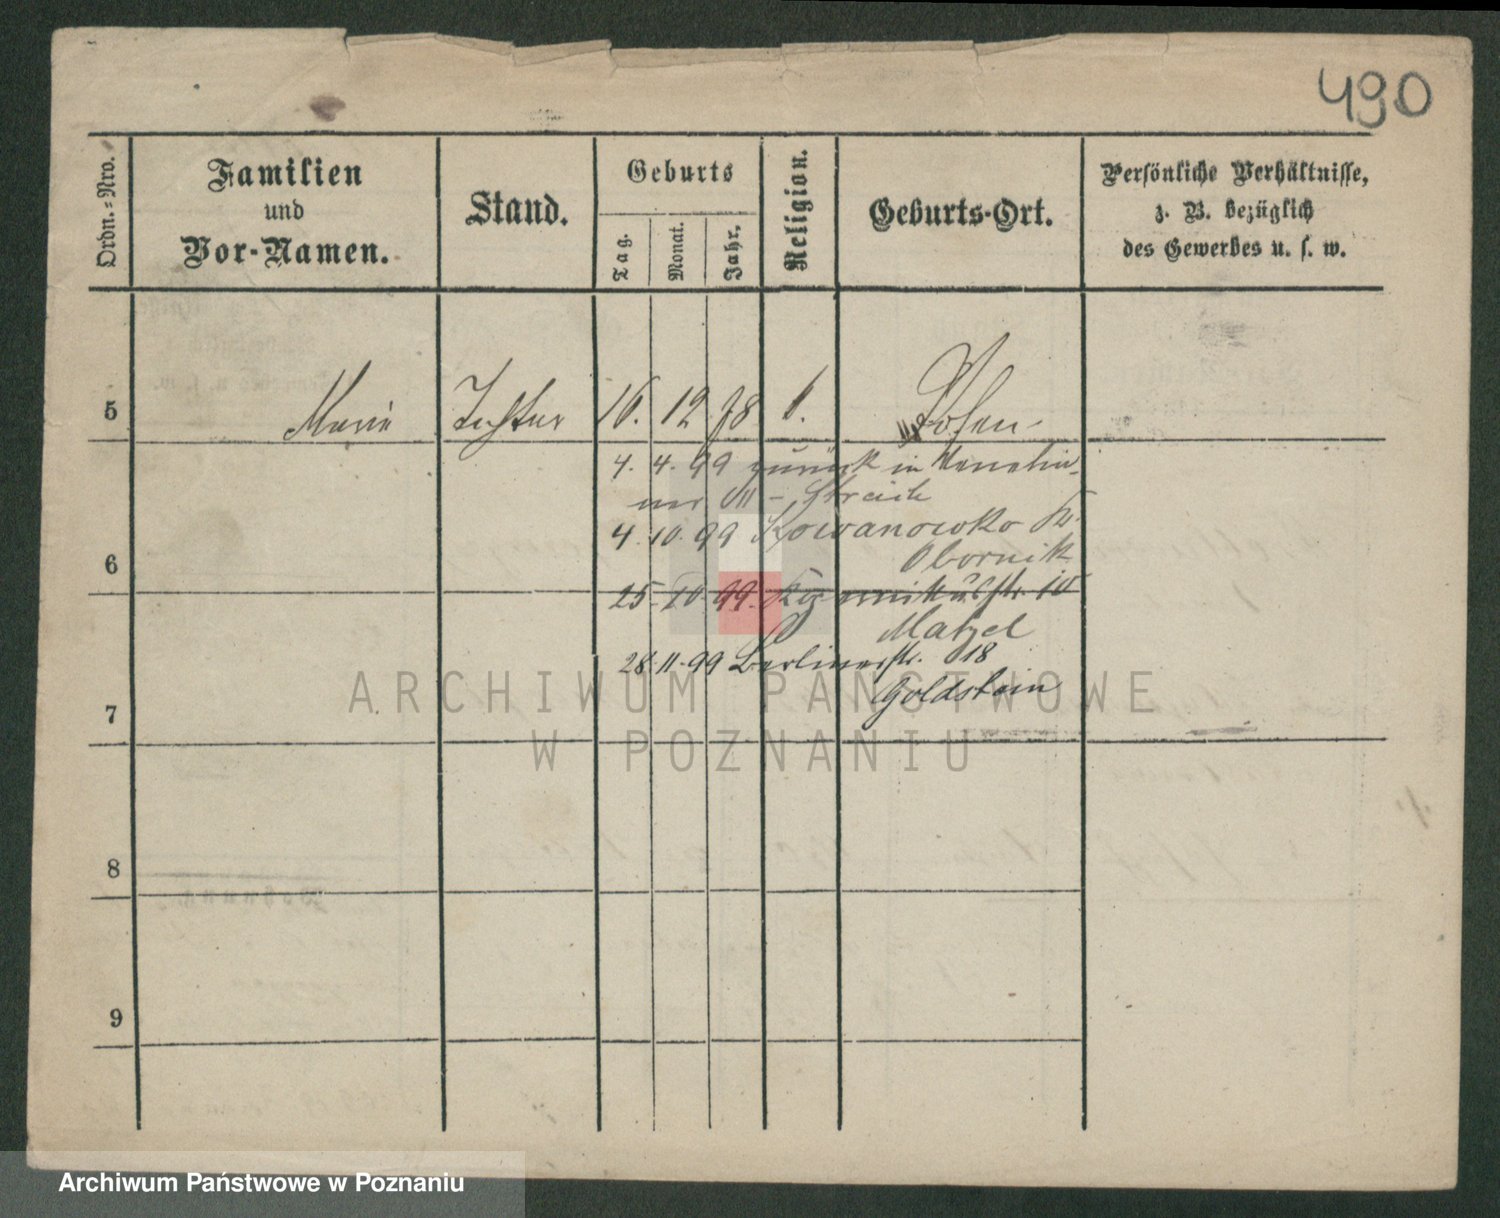 490
Ordn.-Nro.
Familien
und
Vor-Namen.
Stand.
Geburts
Tag.
Monat.
Jahr.
Religion.
Geburts-Ort.
Persönliche Verhältnisse,
z. B. bezüglich
des Gewerbes u. s. w.
5 Marie Tochter 16. 12 78 Posen
4. 4. 99 zurück in
4. 10. 99 Kowanowko Kr.
Obornik
6
25. 10. 99.
28. 11. 99 Berlinerstr. 18
Goldstein
7
8
9
ARCHIWUM PAŃSTWOWE
W POZNANIU
Archiwum Państwowe w Poznaniu